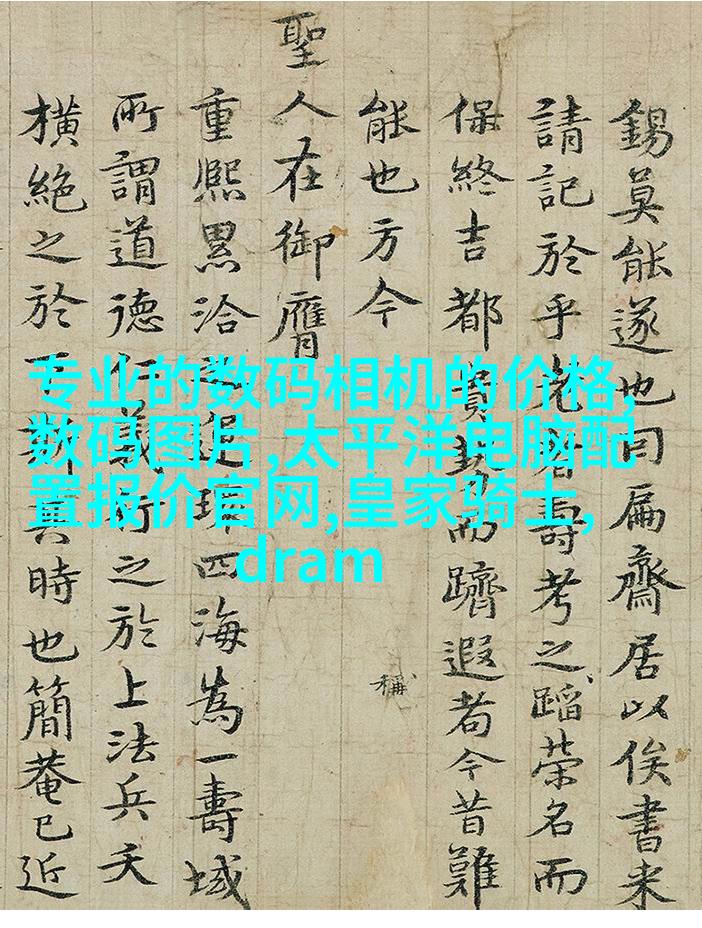 錫莫能遂也曰扁齋居以俟書来
請記於乎壽考之蹈荣名而
保終吉都貴勢而躋遐耇今昔難
能也方今
稱
聖人在御膺
重熙累洽四海為一壽域
所謂道德仁義行之於上法兵夭
橫絕之於下時也簡菴已近
专业的数码相机的价格,
数码图片,太平洋电脑配
置报价官网,皇家骑士,
dram